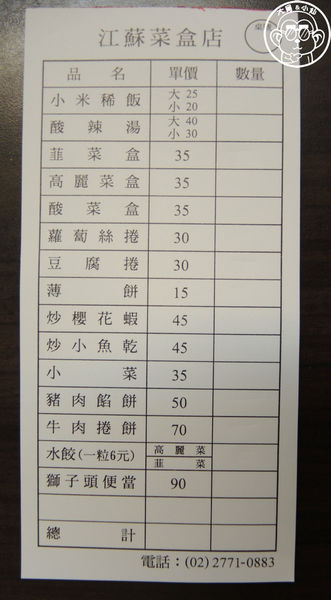 江蘇菜盒店
桌
大胃&小的
品名 單價 數量
小米稀飯 大 25 小 20
酸辣湯 大 40 小 30
韮菜盒 35
高麗菜盒 35
酸菜盒 35
蘿蔔絲捲 30
豆腐捲 30
薄餅 15
炒櫻花蝦 45
炒小魚乾 45
小菜 35
豬肉餡餅 50
牛肉捲餅 70
水餃(一粒6元) 高麗菜 韮菜
獅子頭便當 90
總計
電話:(02)2771-0883